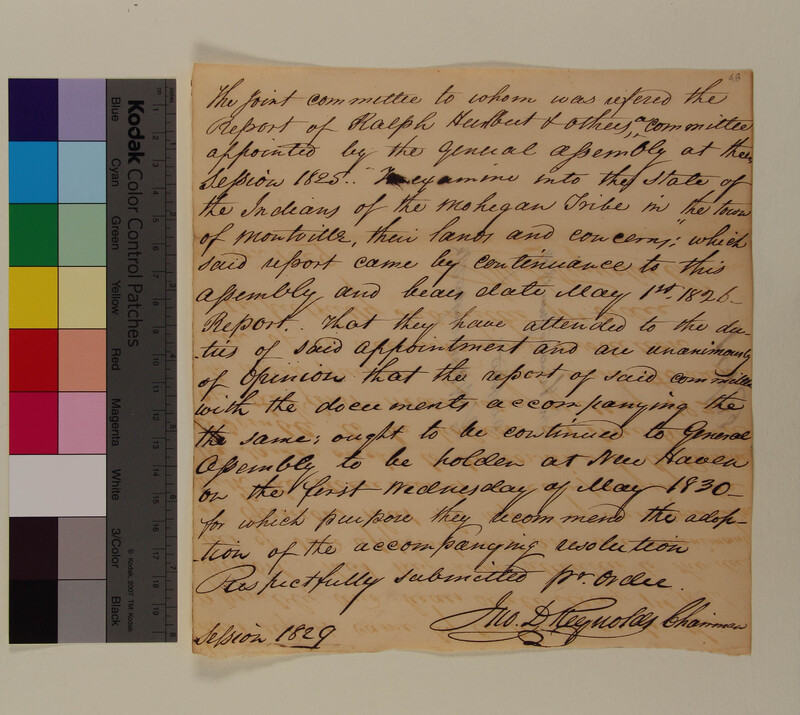 68
The Joint committee to whom was refered the
Report of Ralph Hurlbut & others, a committee
appointed by the General Assembly at their
Session 1825.. "To examine into the State of
the Indians of the Mohegan Tribe in the town
of Montville, their lands and concerns;" which
said report came by continuance to this
Assembly and bears date May 1st. 1826—
Report.. That they have attended to the du-
-ties of said appointment and are unanimously
of Opinion that the report of said committee
with the documents accompanying the
the same; ought to be continued to General
Assembly to be holden at New Haven
on the first Wednesday of May 1830—
for which purpose they recommend the adop-
-tion of the accompanying resolution
Respectfully submitted pr. Order.
Jno. D. Reynolds Chairman
Session 1829
Kodak Color Control Patches
Blue
Cyan
Green
Yellow
Red
Magenta
White
3/Color
Black
© Kodak, 2007 TM: Kodak